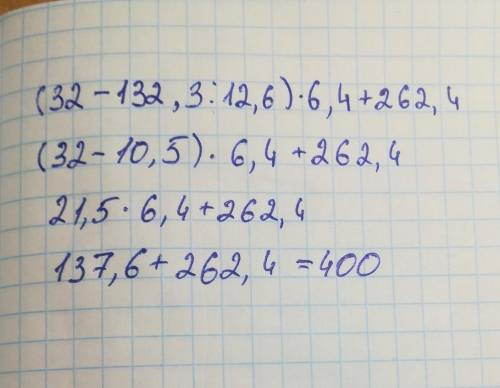 (32-132,3:12,6)·6,4+262,4
(32-10,5)·6,4+262,4
21,5·6,4+262,4
137,6+262,4=400